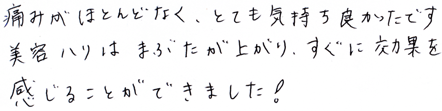 痛みがほとんどなく、とても気持ち良かったです
美容ハリはまぶたが上がり、すぐに効果を
感じることができました！